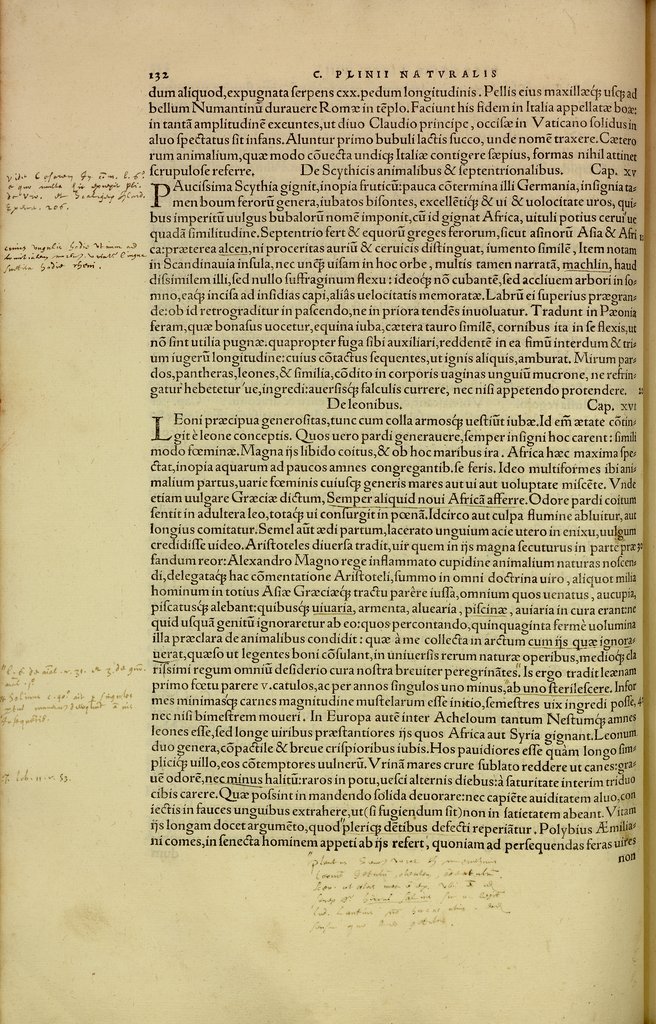 132 C. PLINII NATVRALIS
dum aliquod, expugnata serpens cxx. pedum longitudinis. Pellis eius maxillæq́; usq; ad
bellum Numantinũ durauere Romæ in tẽplo. Faciunt his fidem in Italia appellatæ boæ:
in tantã amplitudinẽ exeuntes, ut diuo Claudio principe, occisæ in Vaticano solidus in
aluo spectatus sit infans. Aluntur primo bubuli lactis succo, unde nomẽ traxere. Cætero
rum animalium, quæ modo cõuecta undiq; Italiæ contigere sæpius, formas nihil attinet
scrupulose referre. De Scythicis animalibus & septentrionalibus. Cap. xv
PAucissima Scythia gignit, inopia fruticũ: pauca cõtermina illi Germania, insignia ta=
men boum ferorũ genera, iubatos bisontes, excellẽtiq́; & ui & uelocitate uros, qui=
bus imperitũ uulgus bubalorũ nomẽ imponit, cũ id gignat Africa, uituli potius cerui'ue
quadã similitudine. Septentrio fert & equorũ greges ferorum, sicut asinorũ Asia & Afri
ca: præterea alcen, ni proceritas auriũ & ceruicis distinguat, iumento similẽ, Item notam
in Scandinauia insula, nec unq̃ uisam in hoc orbe, multis tamen narratã, machlin, haud
dissimilem illi, sed nullo suffraginum flexu: ideoq́; nõ cubantẽ, sed accliuem arbori in so=
mno, eaq́; incisa ad insidias capi, aliâs uelocitatis memoratæ. Labrũ ei superius prægran=
de: ob id retrograditur in pascendo, ne in priora tendẽs inuoluatur. Tradunt in Pæonia
feram, quæ bonasus uocetur, equina iuba, cætera tauro similẽ, cornibus ita in se flexis, ut
nõ sint utilia pugnæ. quapropter fuga sibi auxiliari, reddentẽ in ea fimũ interdum & tri=
um iugerũ longitudine: cuius cõtactus sequentes, ut ignis aliquis, amburat. Mirum par=
dos, pantheras, leones, & similia, cõdito in corporis uaginas unguiũ mucrone, ne refrin=
gatur hebetetur'ue, ingredi: auersisq́; falculis currere, nec nisi appetendo protendere.
De leonibus. Cap. xvi
LEoni præcipua generositas, tunc cum colla armosq́; uestiũt iubæ. Id em̃ ætate cõtin=
git è leone conceptis. Quos uero pardi generauere, semper insigni hoc carent: simili
modo fœminæ. Magna ijs libido coitus, & ob hoc maribus ira. Africa hæc maxima spe=
ctat, inopia aquarum ad paucos amnes congregantib. se feris. Ideo multiformes ibi ani=
malium partus, uarie fœminis cuiusq́; generis mares aut ui aut uoluptate miscẽte. Vnde
etiam uulgare Græciæ dictum, Semper aliquid noui Africã afferre. Odore pardi coitum
sentit in adultera leo, totaq́; ui consurgit in pœnã. Idcirco aut culpa flumine abluitur, aut
longius comitatur. Semel aũt ædi partum, lacerato unguium acie utero in enixu, uulgum
credidisse uideo. Aristoteles diuersa tradit, uir quem in ijs magna secuturus in parte præ
fandum reor: Alexandro Magno rege inflammato cupidine animalium naturas noscen=
di, delegataq́; hac cõmentatione Aristoteli, summo in omni doctrina uiro, aliquot milia
hominum in totius Asiæ Græciæq́; tractu parêre iussa, omnium quos uenatus, aucupia,
piscatusq́; alebant: quibusq́; uiuaria, armenta, aluearia, piscinæ, auiaria in cura erant: ne
quid usquã genitũ ignoraretur ab eo: quos percontando, quinquaginta fermè uolumina
illa præclara de animalibus condidit: quæ à me collecta in arctum cum ijs quæ ignora=
uerat, quæso ut legentes boni cõsulant, in uniuersis rerum naturæ operibus, medioq́; cla
rissimi regum omniũ desiderio cura nostra breuiter peregrinãtes. Is ergo tradit leænam
primo fœtu parere v. catulos, ac per annos singulos uno minus, ab uno sterilescere. Infor
mes minimasq́; carnes magnitudine mustelarum esse initio, semestres uix ingredi posse,
nec nisi bimestrem moueri. In Europa autẽ inter Acheloum tantum Nestumq́; amnes
leones esse, sed longe uiribus præstantiores ijs quos Africa aut Syria gignant. Leonum
duo genera, cõpactile & breue crispioribus iubis. Hos pauidiores esse quàm longo sim=
pliciq́; uillo, eos cõtemptores uulnerũ. Vrinã mares crure sublato reddere ut canes: gra=
uẽ odorẽ, nec minus halitũ: raros in potu, uesci alternis diebus: à saturitate interim triduo
cibis carere. Quæ possint in mandendo solida deuorare: nec capiẽte auiditatem aluo, con
iectis in fauces unguibus extrahere, ut (si fugiendum sit) non in satietatem abeant. Vitam
ijs longam docet argumẽto, quod plerisq́; dẽtibus defecti reperiãtur. Polybius Æmilia=
ni comes, in senecta hominem appeti ab ijs refert, quoniam ad persequendas feras uires
non